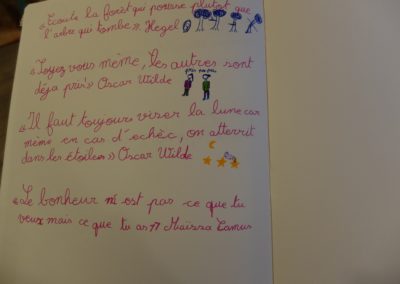 « Ecoute la forêt qui pousse plutôt que
l'arbre qui tombe » Hegel
« Soyez vous même, les autres sont
déja pris » Oscar Wilde
« Il faut toujours viser la lune car
même en cas d'echèc, on atterrit
dans les étoiles » Oscar Wilde
« Le bonheur n'est pas ce que tu
veux mais ce que tu as »